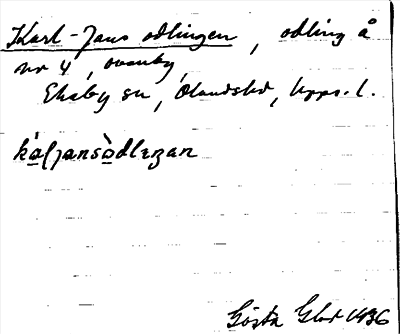 Karl-Jans odlingen, odling å
nr 4, Ovanby,
Ekeby sn, Olandshd, Upps. l.
kál̨jansòdleŋan
Gösta Glad 1936